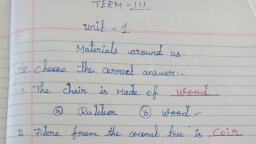 TERM - III
Unit - 1
Materials around us
V. Choose the correct answer:-
1. The chair is made of wood
ⓐ Rubber ⓑ wood ✓
2. Fibre from the coconut tree is Coir